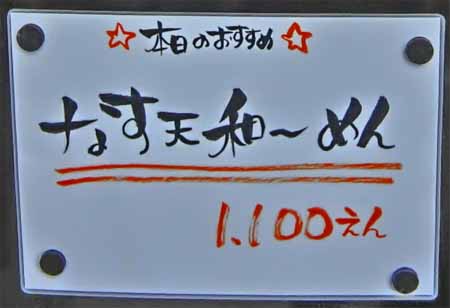 ☆本日のおすすめ☆
なす天和〜めん
1,100えん